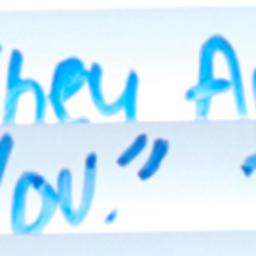 hey A
You."